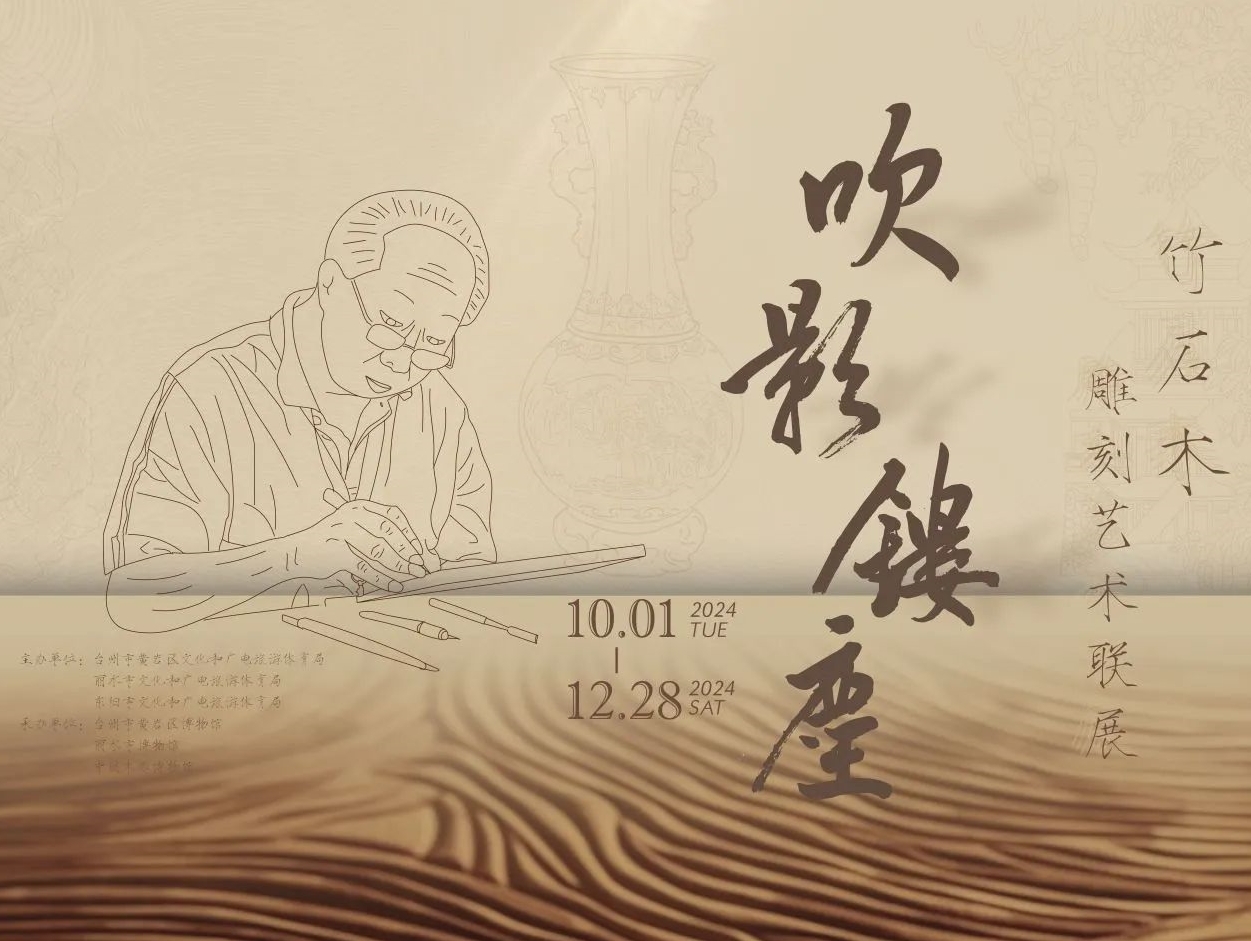 吹影镂尘
竹石木
雕刻艺术联展
10.01 2024 TUE
12.28 2024 SAT
主办单位：台州市黄岩区文化和广电旅游体育局
丽水市文化和广电旅游体育局
东阳市文化和广电旅游体育局
承办单位：台州市黄岩区博物馆
丽水市博物馆